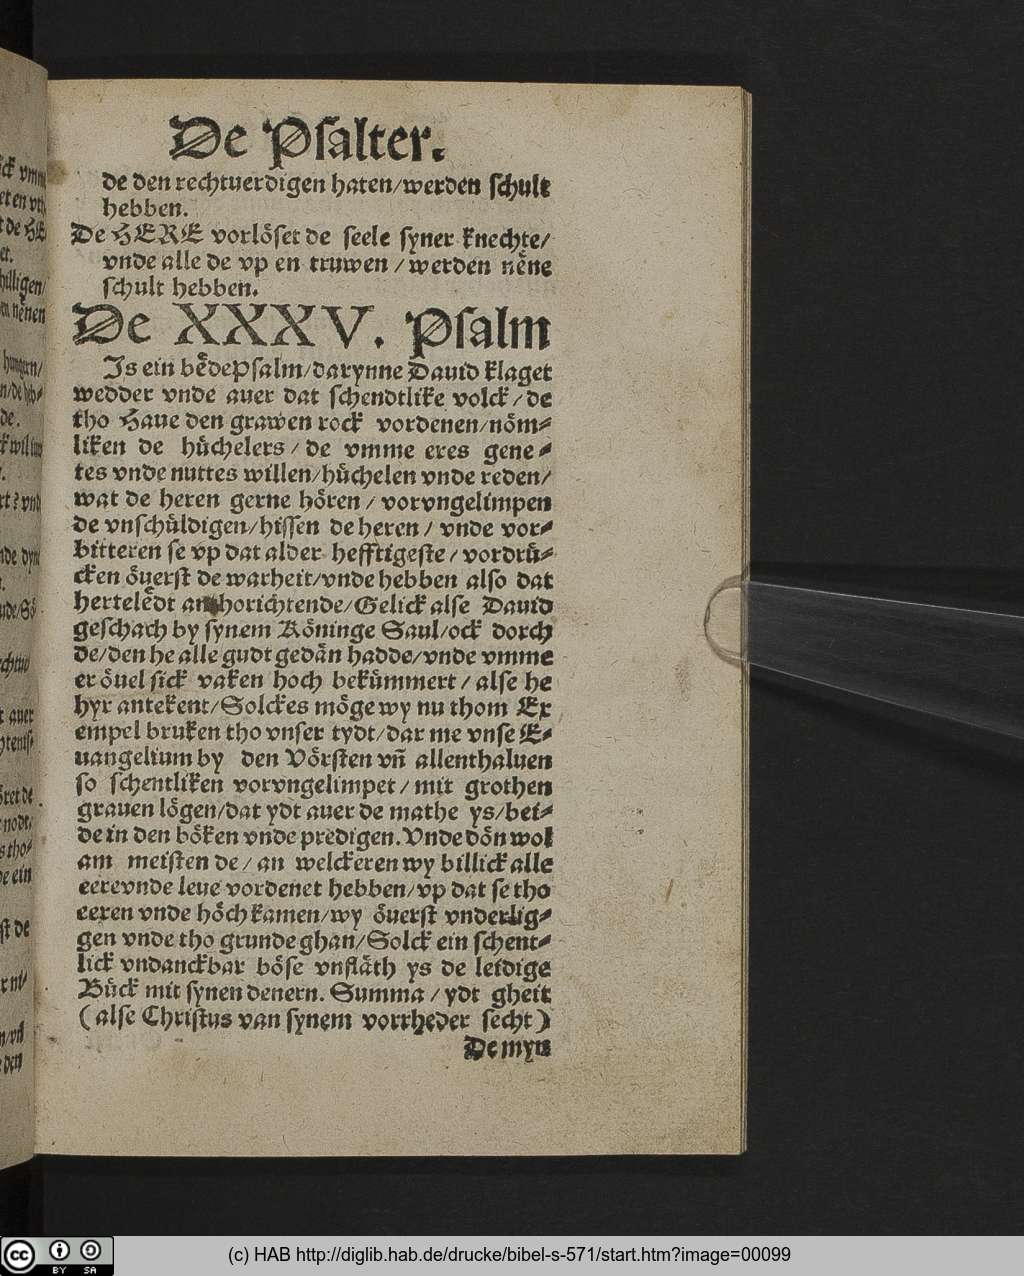 De Psalter.
de den rechtuerdigen haten/werden schult
hebben.
De HERE vorlöset de seele syner knechte/
vnde alle de vp en truwen/werden nēne
schult hebben.
De XXXV. Psalm
Js ein bēdePsalm/darynne Dauid klaget
wedder vnde auer dat schendtlike volck/de
tho Haue den grawen rock vordenen/nöm⸗
liken de hüchelers/de vmme eres gene⸗
tes vnde nuttes willen/hüchelen vnde reden/
wat de heren gerne hören/vorvngelimpen
de vnschüldigen/hissen de heren/vnde vor⸗
bitteren se vp dat alder hefftigeste/vordrü⸗
cken öuerst de warheit/vnde hebben also dat
hertelēdt an horichtende/Gelick alse Dauid
geschach by synem Köninge Saul/ock dorch
de/den he alle gudt gedān hadde/vnde vmme
er öuel sick vaken hoch bekümmert/alse he
hyr antekent/Solckes möge wy nu thom Ex
empel bruken tho vnser tydt/dar me vnse E⸗
uangelium by den Vörsten vn̄ allenthaluen
so schentliken vorvngelimpet/mit grothen
grauen lögen/dat ydt auer de mathe ys/bei⸗
de in den böken vnde predigen. Vnde dön wol
am meisten de/an welckeren wy billick alle
eerevnde leue vordenet hebben/vp dat se tho
eeren vnde höch kamen/wy öuerst vnderlig⸗
gen vnde tho grunde ghan/Solck ein schent⸗
lick vndanckbar böse vnflāth ys de leidige
Bück mit synen denern. Summa/ydt gheit
(alse Christus van synem vorrheder secht)
De myn
(c) HAB http://diglib.hab.de/drucke/bibel-s-571/start.htm?image=00099
cc
BY SA